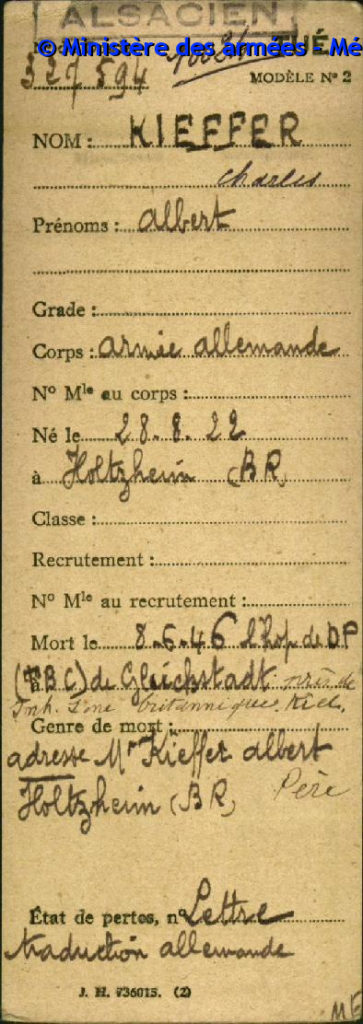 ALSACIEN
© Ministère des armées - Mé
327 594
THÉ
MODÈLE Nº 2
NOM : KIEFFER
Charles
Prénoms : albert
Grade :
Corps : armée allemande
Nº Mle au corps :
Né le 28.8.22
à Holtzheim (BR)
Classe :
Recrutement :
Nº Mle au recrutement :
Mort le 8.6.46 l'hop de DP
(TBC) de Gluckstadt près de
zone britannique. Kiel.
Genre de mort :
adresse Mr Kieffer albert
Holtzheim (BR) Père
État de pertes, nº Lettre
traduction allemande
J. H. 736015. (2)